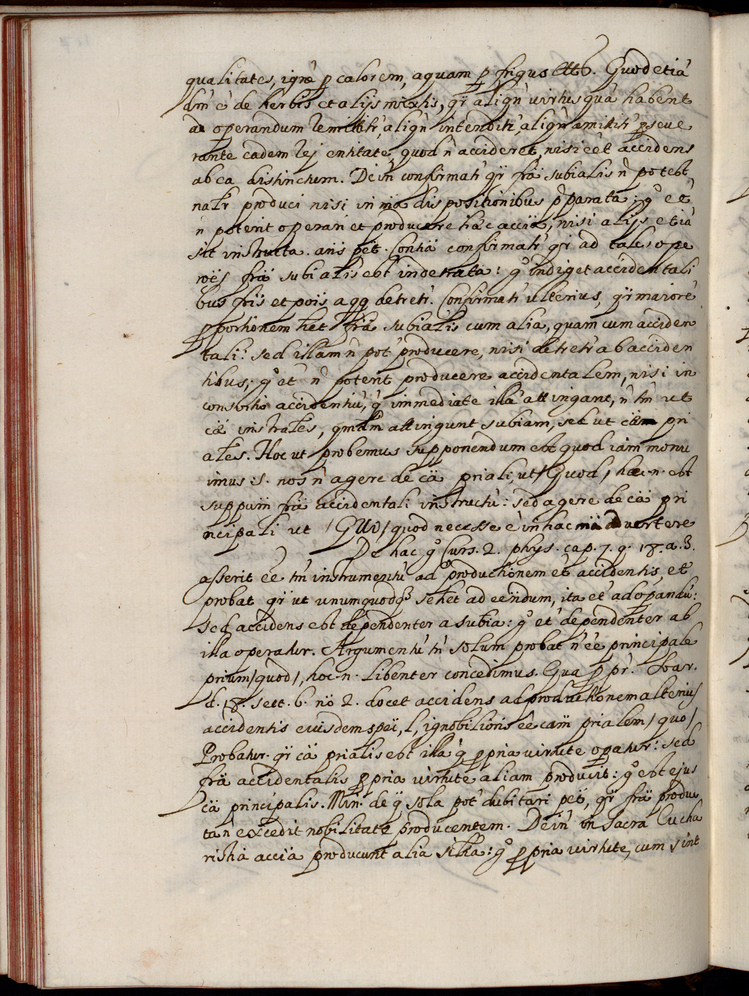 qualitates, igne p calorem, aquam p frigus etc. Quod etiā
dm̄ ē de herbis et alijs mixtis, qr̄ aliqn̄ virtus quā habent
ad operandum remittitr̄ aliqn̄ intenditr̄ aliqn̄ amittitr̄ perseve
rante eadem rej entitate, quod n̄ accideret, nisi eēt accidens
ab ea distinctum. Dein̄ confirmatr̄ qr̄ frā subialis n̄ potest
nalr̄ produci nisi in mā dispositionibus pparata; gº et
n̄ poterit operari et producere hāc acciā, nisi alijs etiā
sit instructa. ans pēt. Contiā confirmatr̄ qr̄ ad tales ope
roēs frā subialis est indetrāta: gº indiget accidentali
bus fris et pois a qq detretr̄. Confirmatr̄ ulterius, qr̄ maiorē
pportionem het frā subialis cum alia, quam cum acciden
tali: sed illam n̄ pot producere, nisi detretr̄ ab acciden
tibus; gº et n̄ poterit producere accidentalem, nisi in
consortio accidentiū, q̄ immediate illā attingant, n̄ tm̄ ut
cæ instrales, qm̄dm̄ attingunt subiam, sed ut cām pri
ales. Hoc ut probemus supponendum est quod iam monu
imus s. nos n̄ agere de cā priali, ut/Quod/hæc n. est
suppūm frā accidentali instructū: sed agere de cā pri
ncipali ut /QUO/ quod necesse ē in hac mā advertere
De hac gº Curs. 2. phys. cap. 7. q. 18. a. 3.
asserit eē tm̄ instrumentū ad productionem et accidentis, et
probat qr̄ ut unumquodq3 se het ad eēndum, ita et ad opandū:
sed accidens est dependenter a subia: gº et dependenter ab
illa operatur. Argumentū tm̄ solum probat n̄ eē principale
prium/quod/, hoc n. libenter concedimus. Qua p pr. Soar.
d. 18. sect. 6. nō 2. docet accidens ad productionem alterius
accidentis eiusdem speī, l, ignobilioris eē cām prialem/quo/
Probatur. qr̄ cā prialis est illa q̄ ppria virtute opatur: sed
frā accidentalis ppria virtute aliam producit: gº est ejus
cā principalis. Min. de q̄ sola pot dubitari pēt, qr̄ frā produc
ta n̄ excedit nobilitate producentem. Dein̄ in Sacra Eucha
ristia acciā producunt alia silia: gº ppria virtute, cum sint